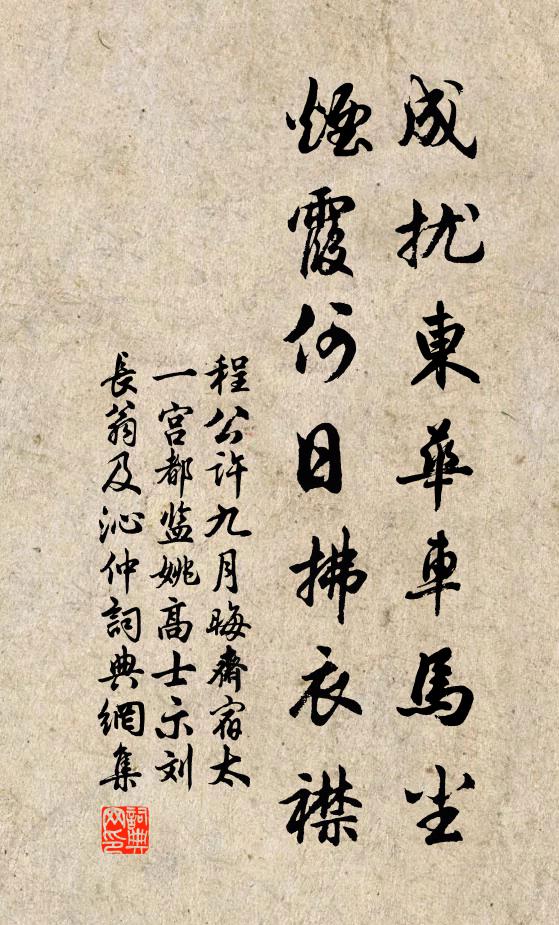 成扰東華車馬尘
煙霞何日拂衣襟
程公许九月晦齋宿太
一宫都监姚高士示刘
長翁及沁仲詞典網集
詞典网印